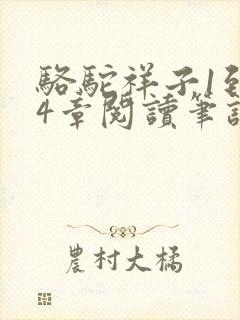 駱駝祥子1到
4章閱讀筆記
農村大橘